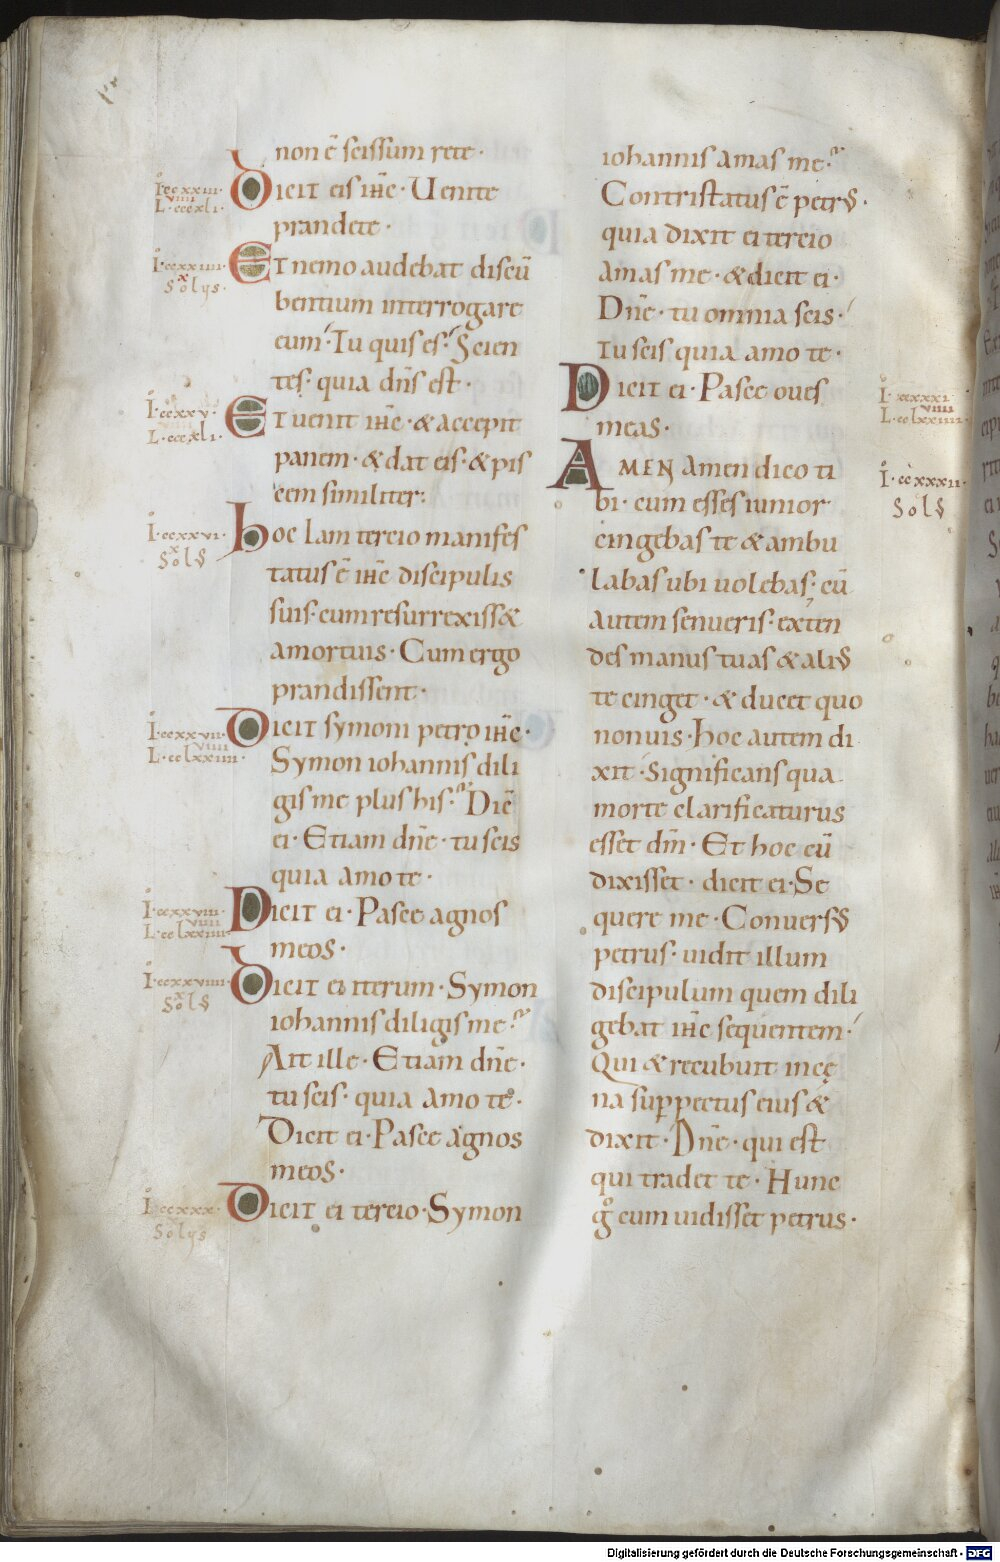 non ē scissum rete·
Dicit eis ihē· Uenite
prandete·
Et nemo audebat discū
bentium interrogare
eum· Tu quis es· Scien
tes· quia dn̄s est·
Et uenit ihē· & accepit
panem· & dat eis· & pis
cem similiter:
hoc Iam tercio manifes
tatus ē ihē discipulis
suis· cum resurrexiss&
amortuis· Cum ergo
prandissent·
Dicit symoni petro ihē·
Symon iohannis dili
gis me plus his· Dic̄
ei· Etiam dn̄e· tu scis
quia amo te·
Dicit ei· Pasce agnos
meos·
Dicit ei iterum· Symon
iohannis diligis me·
Ait ille· Etiam dn̄e·
tu scis· quia amo te·
Dicit ei· Pasce agnos
meos·
Dicit ei tercio· Symon
iohannis amas me·
Contristatus ē petrus·
quia dixit ei tercio
amas me· & dicit ei·
Dn̄e· tu omnia scis·
tu scis quia amo te·
Dicit ei· Pasce oues
meas·
AMEN amen dico ti
bi· cum esses iunior
cingebas te & ambu
labas ubi uolebas· cū
autem senueris· exten
des manus tuas & alius
te cinget· & ducet quo
non uis· hoc autem di
xit· Significans qua
morte clarificaturus
esset dm̄· Et hoc cū
dixisset· dicit ei· Se
quere me· Conuersus
petrus· uidit illum
discipulum quem dili
gebat ihē sequentem·
Qui & recubuit in cę
na sup̱ pectus eius &
dixit· Dn̄e· qui est
qui tradet te· Hunc
gͦ cum uidisset petrus·
I· ccxxiii·
L· cccxli·
I· ccxxiiii·
Solys·
I· ccxxv·
L· cccxli·
I· ccxxvi·
Sols
I· ccxxvii·
L· cclxxiiii·
I· ccxxviii·
L· cclxxiiii·
I· ccxxviiii·
Sols
I· ccxxx·
Solys
I· ccxxxi·
L· cclxxiiii·
I· ccxxxii·
Sols
Digitalisierung gefördert durch die Deutsche Forschungsgemeinschaft - DFG